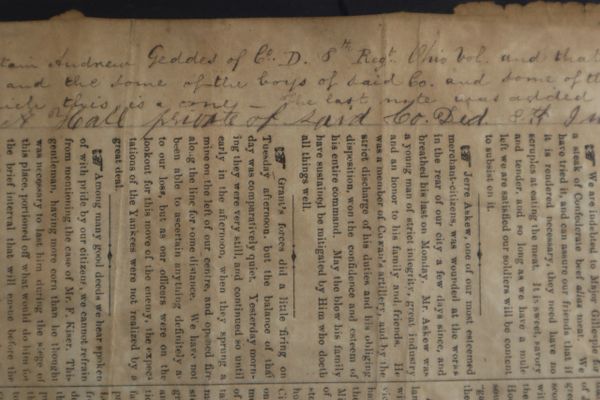 tain Andrew Geddes of Co. D. 8th Regt. Ohio Vol. and that
and the some of the boys of said Co. and some of th
this is a The last note was added
Hall private of said Co. Did 8th
☞ We are indebted to Major Gillespie for
a steak of Confederate beef alias meat. We
have tried it, and can assure our friends that if
it is rendered necessary, they need have no
scruples at eating the meat. It is sweet, savory
and tender, and so long as we have a mule
left we are satisfied our soldiers will be content
to subsist on it.
Jerre Askew, one of our most esteemed
merchant-citizens, was wounded at the works
in the rear of our city a few days since, and
breathed his last on Monday. Mr. Askew was
a young man of strict integrity, great industry
and an honor to his family and friends. He
was a member of Cowan's artillery, and by the
strict discharge of his duties and his obliging
disposition, won the confidence and esteem of
his entire command. May the blow his family
have sustained be mitigated by Him who doeth
all things well.
☞ Grant's forces did a little firing on
Tuesday afternoon, but the balance of that
day was comparatively quiet. Yesterday morn-
ing they were very still, and continued so until
early in the afternoon, when they sprung a
mine on the left of our centre, and opened fire
along the line for some distance. We have not
been able to ascertain anything definitely as
to our loss, but as our officers were on the
lookout for this move of the enemy, the expec-
tations of the Yankees were not realized by a
great deal.
☞ Among many good deeds we hear spoken
of with pride by our citizens, we cannot refrain
from mentioning the case of Mr. F. Kiser. This
gentleman, having more corn than he thought
was necessary to last him during the siege of
this place, portioned off what would do him for
the brief interval that will ensue before the